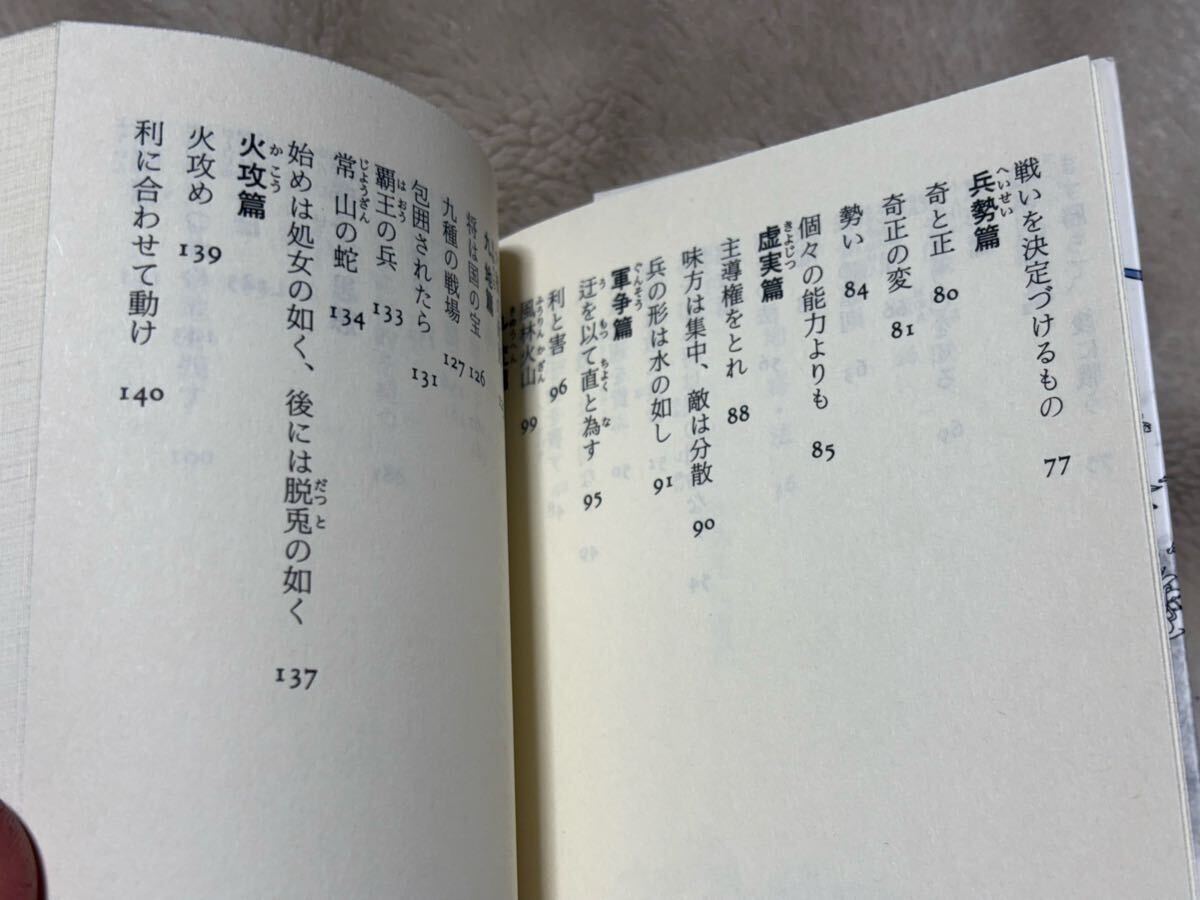 戦いを決定づけるもの 77
兵勢篇
へいせい
奇と正 80
奇正の変 81
勢い 84
個々の能力よりも 85
虚実篇
きよじつ
主導権をとれ 88
味方は集中、敵は分散 90
兵の形は水の如し 91
軍争篇
ぐんそう
迂を以て直と為す 95
う もつ ちよく な
利と害 96
風林火山 99
ふうりん かざん
地篇
将は国の宝 126
九種の戦場 127
包囲されたら 131
覇王の兵 133
はおう
常山の蛇 134
じようざん
始めは処女の如く、後には脱兎の如く 137
だつと
火攻篇
かこう
火攻め 139
利に合わせて動け 140